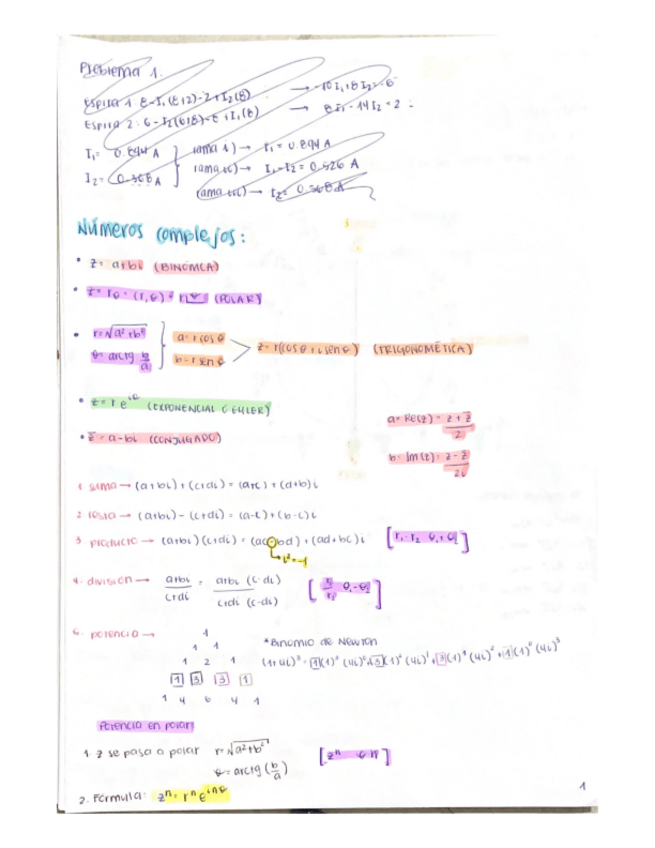 Problema 1.
Espira 1: 8-I₁(8+2)-2+I₂(8) → -10I₁+8I₂=-6
Espira 2: 6-I₂(6+8)-8+I₁(8) → 8I₁-14I₂=2
I₁= 0.894 A
I₂= 0.368 A
rama 1) → I₁= 0.894 A
I₁-I₂ = 0.526 A
I₂= 0.368 A
Números complejos:
• z= a+bi (BINÓMICA)
(POLAR)
• r=√a²+b² a=r cos θ
θ= arctg b/a b=r sen θ
z=r(cos θ+i sen θ) (TRIGONOMÉTICA)
• z=r e^iθ (EXPONENCIAL O EULER)
• z̅=a-bi (CONJUGADO)
a=Re(z)= z+z̅/2
b=Im(z)= z-z̅/2i
1 suma → (a+bi)+(c+di)=(a+c)+(d+b)i
2 resta → (a+bi)-(c+di)=(a-c)+(b-c)i
3 producto → (a+bi)(c+di)=(ac-bd)+(ad+bc)i [r₁·r₂ θ₁+θ₂]
i²=-1
4. división → a+bi/c+di = a+bi (c-di)/c+di (c-di) [r₁/r₂ θ₁-θ₂]
potencia →
1
1 1
1 2 1
1 3 3 1
1 4 6 4 1
*Binomio de Newton
(1+4i)³= 1(1)³(4i)⁰+3(1)²(4i)¹+3(1)¹(4i)²+1(1)⁰(4i)³
Potencia en polar
1. z se pasa a polar r=√a²+b²
θ=arctg(b/a)
2. Fórmula: zⁿ=rⁿe^inθ
1